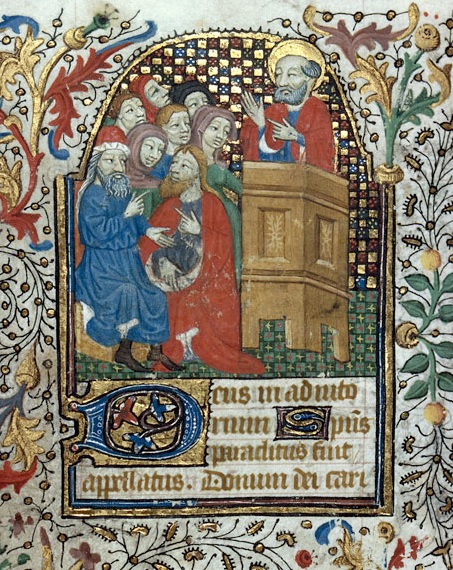 Deus in adiuto
rium Sp̄us
paraclitus fuit
appellatus. Donum dei cari